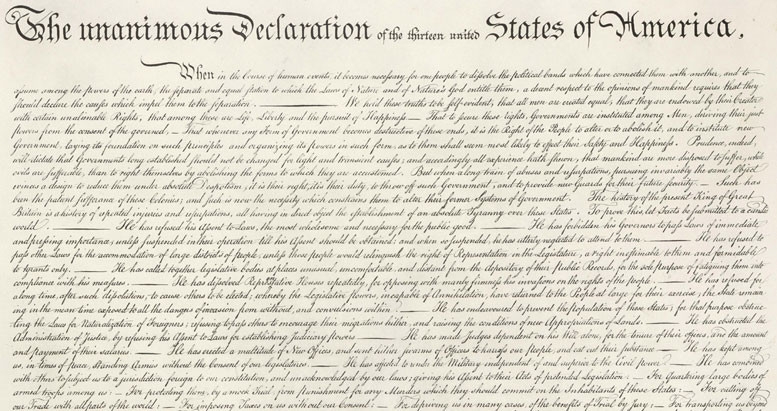 The unanimous Declaration of the thirteen united States of America,
When in the Course of human events, it becomes necessary for one people to dissolve the political bands which have connected them with another, and to
assume among the powers of the earth, the separate and equal station to which the Laws of Nature and of Nature's God entitle them, a decent respect to the opinions of mankind requires that they
should declare the causes which impel them to the separation. — We hold these truths to be self-evident, that all men are created equal, that they are endowed by their Creator
with certain unalienable Rights, that among these are Life, Liberty and the pursuit of Happiness — That to secure these rights, Governments are instituted among Men, deriving their just
powers from the consent of the governed, — That whenever any Form of Government becomes destructive of these ends, it is the Right of the People to alter or to abolish it, and to institute new
Government, laying its foundation on such principles and organizing its powers in such form, as to them shall seem most likely to effect their Safety and Happiness. Prudence, indeed,
will dictate that Governments long established should not be changed for light and transient causes; and accordingly all experience hath shewn, that mankind are more disposed to suffer, while
evils are sufferable, than to right themselves by abolishing the forms to which they are accustomed. But when a long train of abuses and usurpations, pursuing invariably the same Object
evinces a design to reduce them under absolute Despotism, it is their right, it is their duty, to throw off such Government, and to provide new Guards for their future security. — Such has
been the patient sufferance of these Colonies; and such is now the necessity which constrains them to alter their former Systems of Government. The history of the present King of Great
Britain is a history of repeated injuries and usurpations, all having in direct object the establishment of an absolute Tyranny over these States. To prove this, let Facts be submitted to a candid
world. — He has refused his Assent to Laws, the most wholesome and necessary for the public good. — He has forbidden his Governors to pass Laws of immediate
and pressing importance, unless suspended in their operation till his Assent should be obtained; and when so suspended, he has utterly neglected to attend to them. — He has refused to
pass other Laws for the accommodation of large districts of people, unless those people would relinquish the right of Representation in the Legislature, a right inestimable to them and formidable
to tyrants only. — He has called together legislative bodies at places unusual, uncomfortable, and distant from the depository of their Public Records, for the sole purpose of fatiguing them into
compliance with his measures. — He has dissolved Representative Houses repeatedly, for opposing with manly firmness his invasions on the rights of the people. — He has refused for
a long time, after such dissolutions, to cause others to be elected; whereby the Legislative powers, incapable of Annihilation, have returned to the People at large for their exercise; the State remain
ing in the mean time exposed to all the dangers of invasion from without, and convulsions within. — He has endeavoured to prevent the population of these States; for that purpose obstruc
ting the Laws for Naturalization of Foreigners; refusing to pass others to encourage their migrations hither, and raising the conditions of new Appropriations of Lands. — He has obstructed the
Administration of Justice, by refusing his Assent to Laws for establishing Judiciary powers. — He has made Judges dependent on his Will alone, for the tenure of their offices, and the amount
and payment of their salaries. — He has erected a multitude of New Offices, and sent hither swarms of Officers to harrass our People, and eat out their substance. — He has kept among
us, in times of peace, Standing Armies without the Consent of our legislatures. — He has affected to render the Military independent of and superior to the Civil power. — He has combined
with others to subject us to a jurisdiction foreign to our constitution, and unacknowledged by our laws; giving his Assent to their Acts of pretended Legislation: — For Quartering large bodies of
armed troops among us: — For protecting them, by a mock Trial, from punishment for any Murders which they should commit on the Inhabitants of these States: — For cutting off
our Trade with all parts of the world: — For imposing Taxes on us without our Consent: — For depriving us in many cases, of the benefits of Trial by Jury: — For transporting us beyond